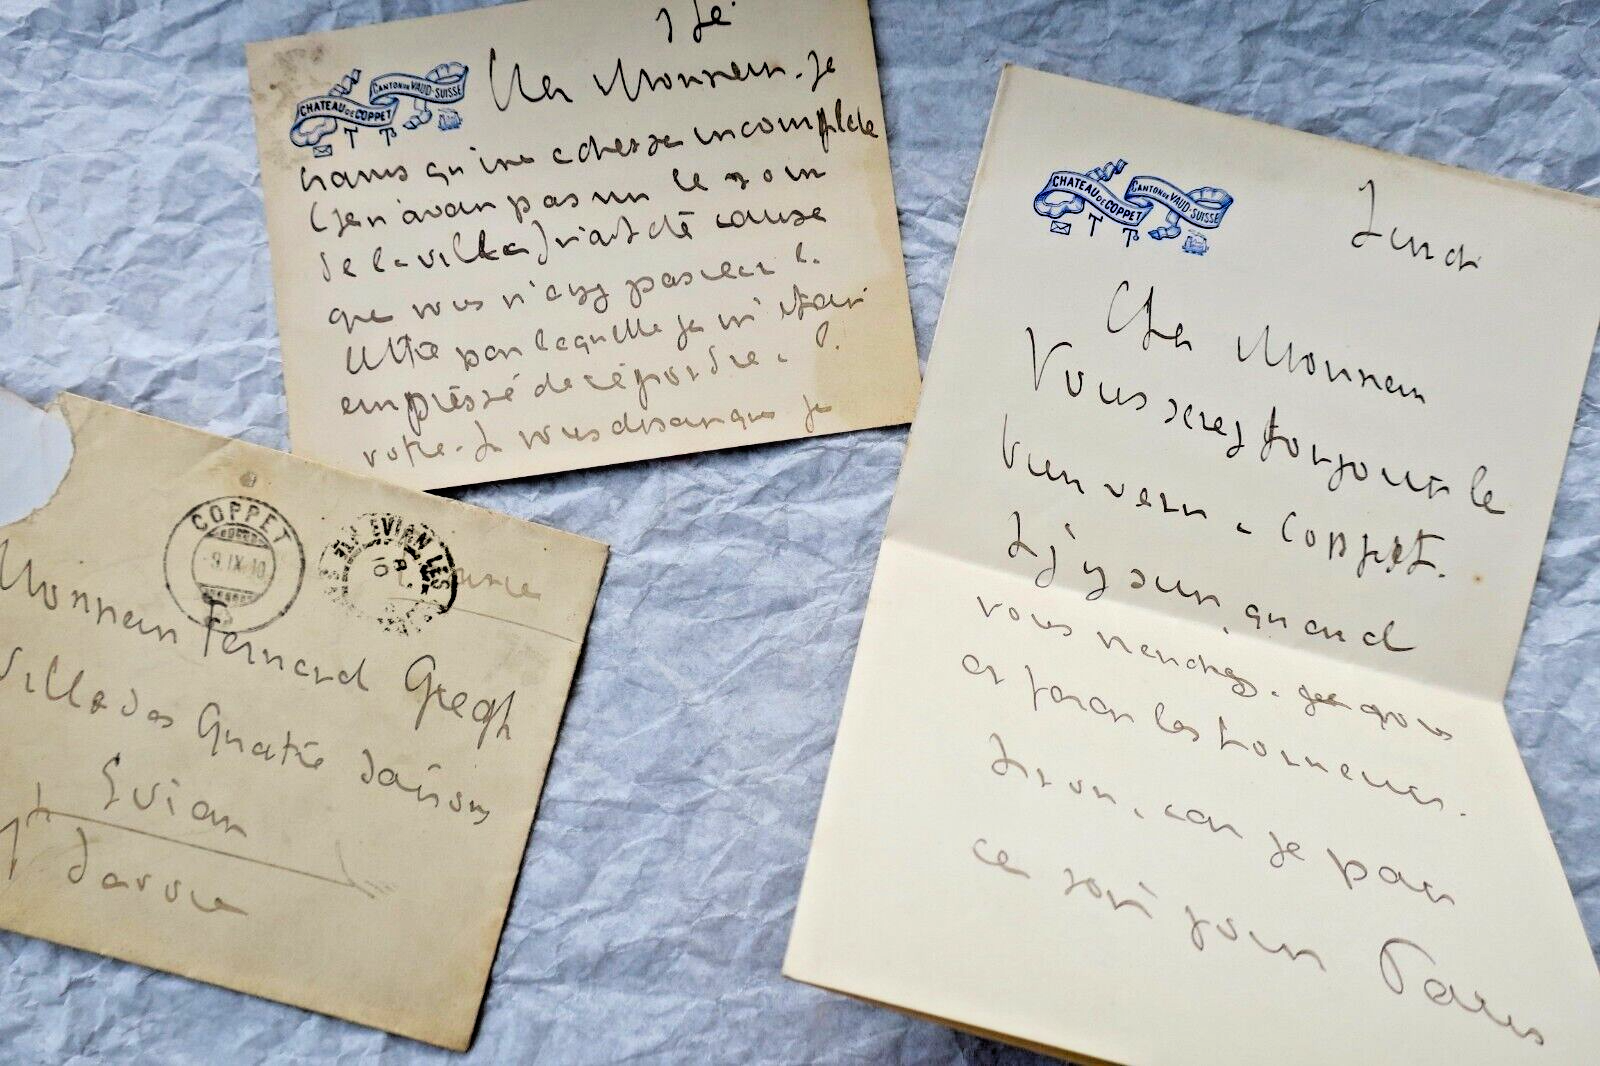 CHATEAU DE COPPET
CANTON DE VAUD-SUISSE
T TB
Cher Monsieur. Je
crains qu'une adresse incomplète
(je n'avais pas mis le nom
de la villa) n'ait été cause
que vous n'ayez pas reçu la
lettre par laquelle je m'étais
empressé de répondre à la
votre. Je vous disais que je
COPPET
-9.IX.10
EVIAN LES
Monsieur Fernand Gregh
Villa des Quatre Saisons
Evian
Savoie
CHATEAU DE COPPET
CANTON DE VAUD-SUISSE
T TB
Lundi
Cher Monsieur
Vous serez toujours le
bien venu à Coppet.
Si j'y suis, quand
vous viendrez,
et ferai les honneurs.
Sinon, car je pars
ce soir pour Paris